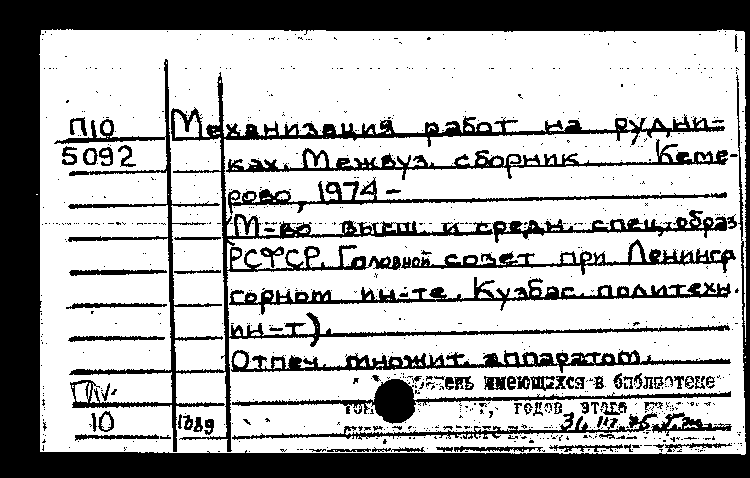 П10
5092
Механизация работ на рудни-
ках. Межвуз. сборник. Кеме-
рово, 1974 -
(М-во высш. и средн. спец. образ.
РСФСР. Головной совет при Ленингр.
горном ин-те. Кузбас. политехн.
ин-т).
Отпеч. множит. аппаратом.
имеющихся в библиотеке
годов этого
10 31.III.75